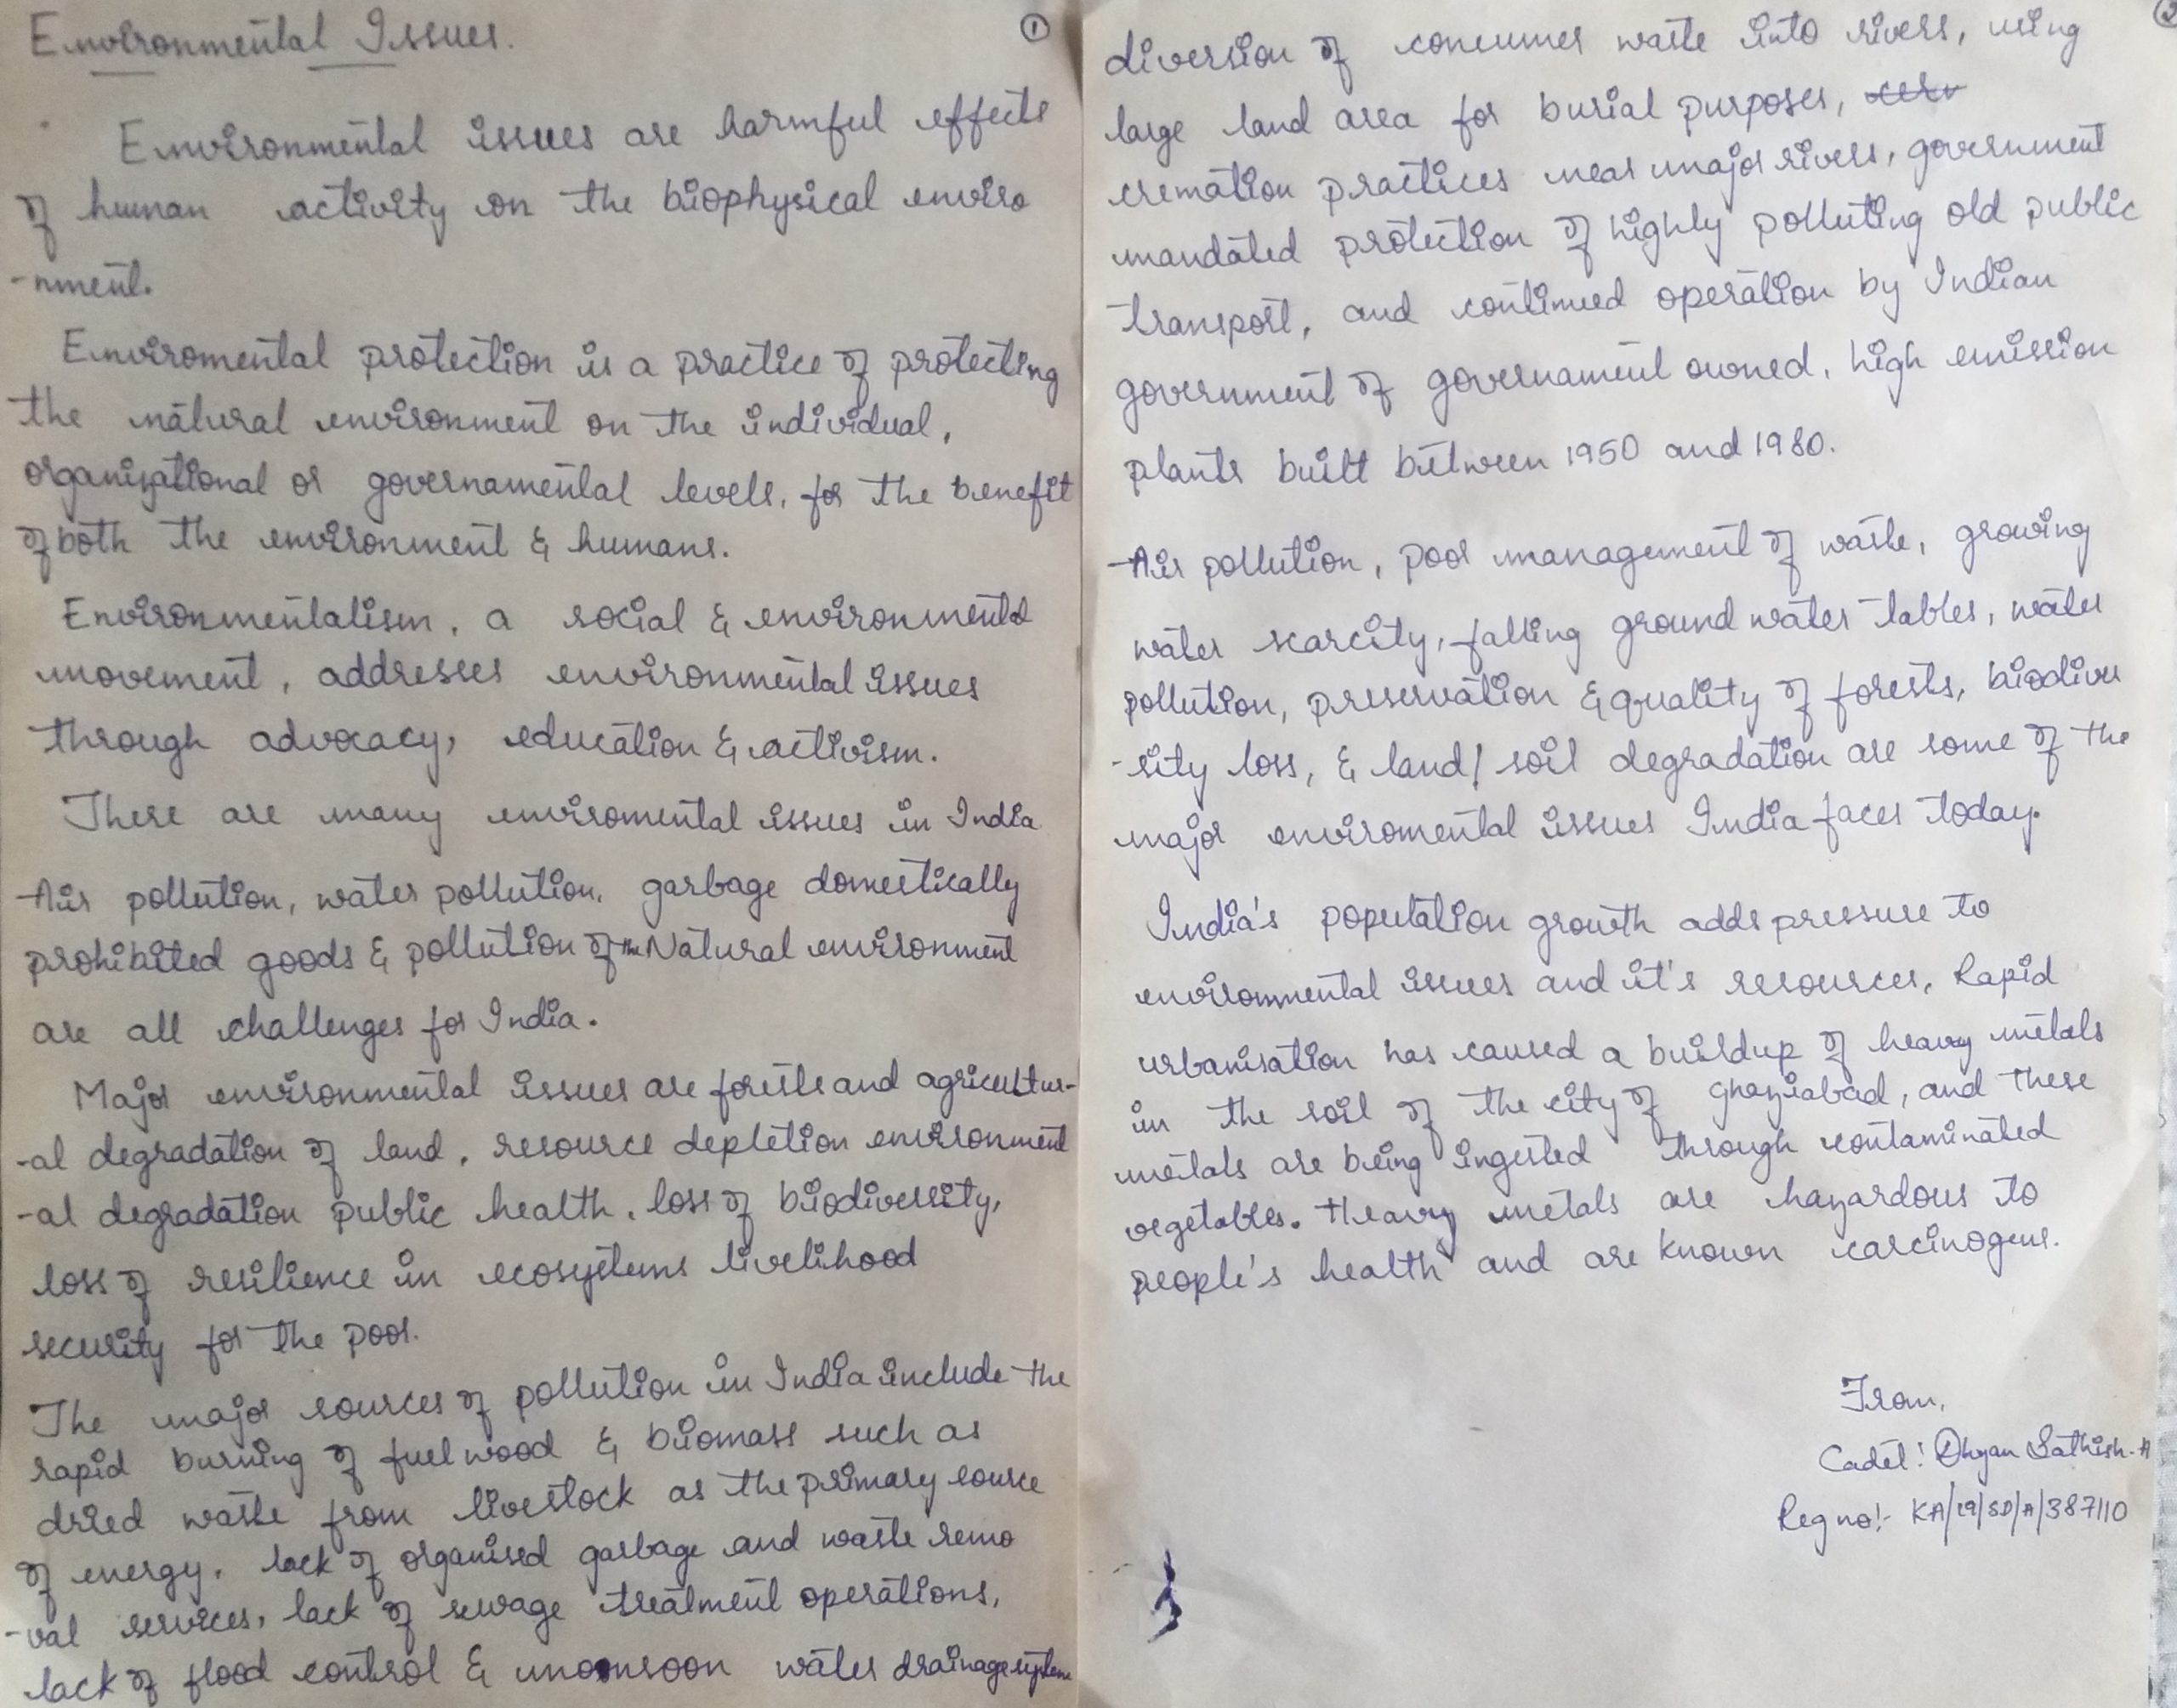 Environmental Issues.
①
Environmental issues are harmful effects
of human activity on the biophysical enviro
-nment.
Enviromental protection is a practice of protecting
the natural environment on the individual,
organizational or governamental levels, for the benefit
of both the environment & humans.
Environmentalism, a social & environmental
movement, addresses environmental issues
through advocacy, education & activism.
There are many enviromental issues in India
Air pollution, water pollution, garbage domestically
prohibited goods & pollution of the Natural environment
are all challenges for India.
Major environmental issues are forests and agricultur-
-al degradation of land, resource depletion environment
-al degradation public health, loss of biodiversity,
loss of resilience in ecosystems livelihood
security for the poor.
The major sources of pollution in India include the
rapid burning of fuel wood & biomass such as
dried waste from livestock as the primary source
of energy, lack of organised garbage and waste remo
-val services, lack of sewage treatment operations,
lack of flood control & monsoon water drainage system
diversion of consumer waste into rivers, using
large land area for burial purposes,
cremation practices near major rivers, government
mandated protection of highly polluting old public
transport, and continued operation by Indian
government of governament owned, high emission
plants built between 1950 and 1980.
Air pollution, poor management of waste, growing
water scarcity, falling ground water tables, water
pollution, preservation & quality of forests, biodiver
-sity loss, & land/soil degradation are some of the
major enviromental issues India faces today.
India's population growth adds pressure to
environmental issues and it's resources, Rapid
urbanisation has caused a buildup of heavy metals
in the soil of the city of ghaziabad, and these
metals are being ingested through contaminated
vegetables. Heavy metals are hazardous to
people's health and are known carcinogens.
From,
Cadet: Dhyan Sathish. A
Reg no:- KA/19/SD/A/387110